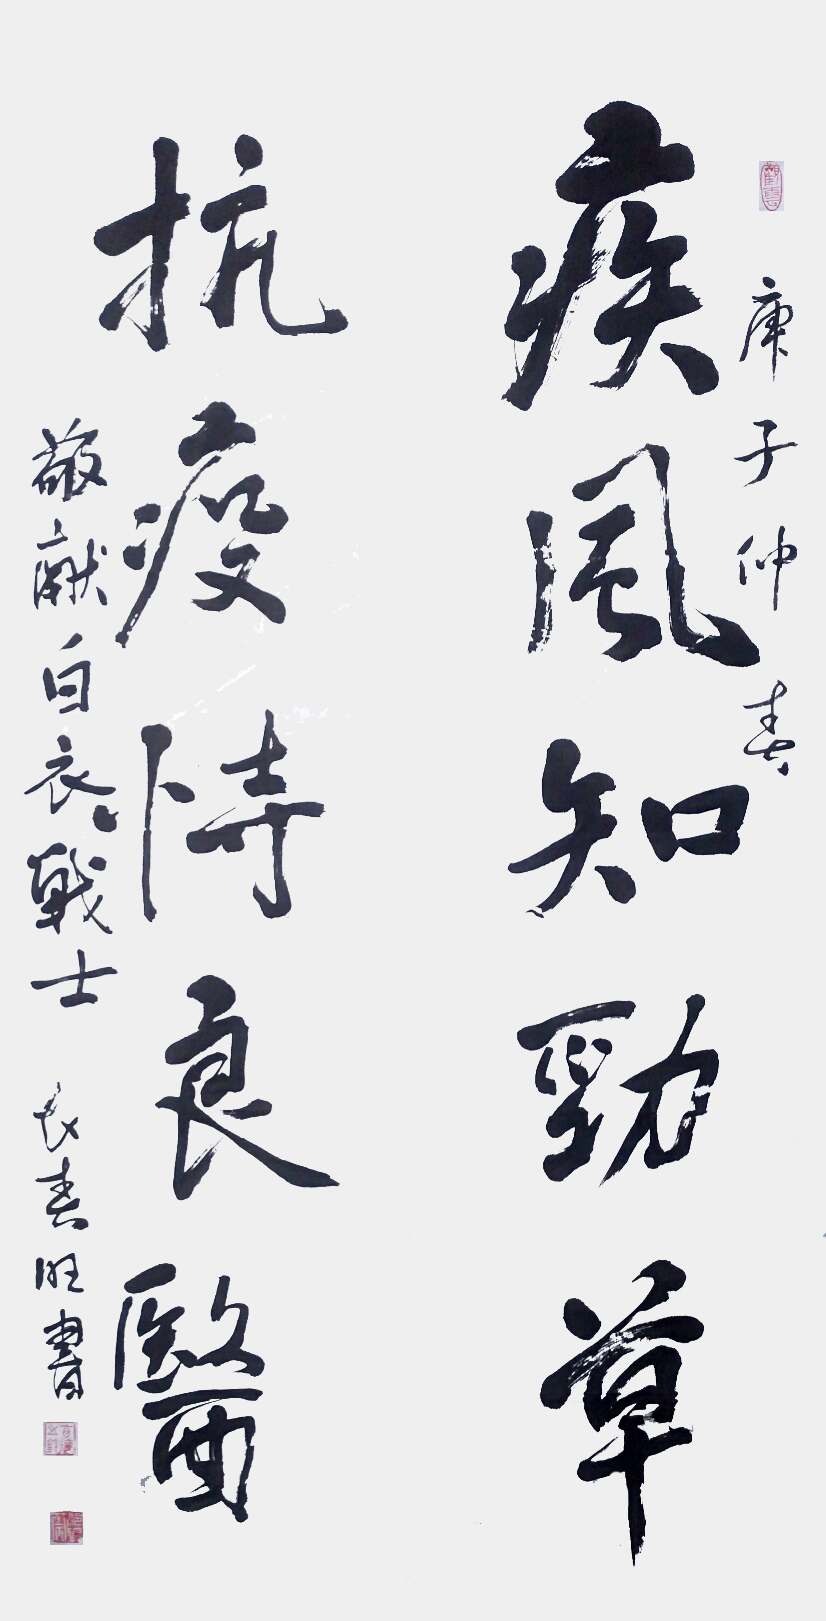 庚子仲春
疾風知勁草
抗疫恃良醫
敬献白衣戰士 长春旺書